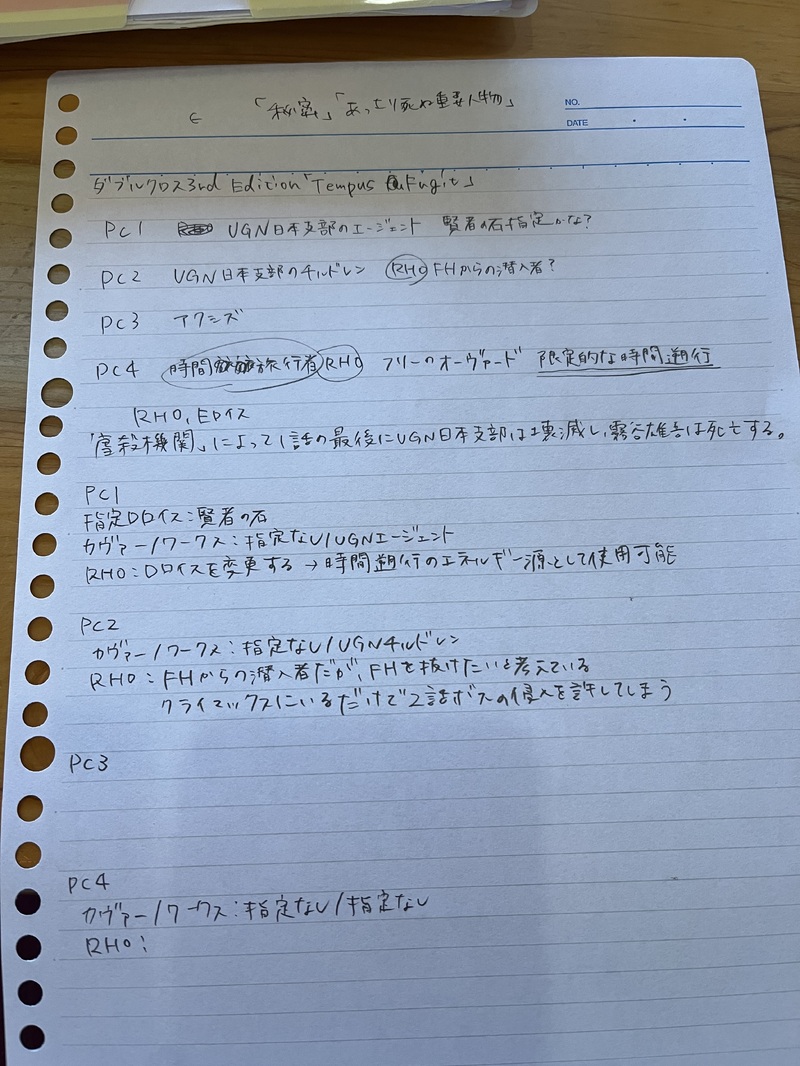 「秘密」「あっさり死ぬ重要人物」
NO.
DATE
ダブルクロス3rd Edition「Tempus Fugit」
PC1 UGN日本支部のエージェント 賢者の石指定かな?
PC2 UGN日本支部のチルドレン RHO FHからの潜入者?
PC3 アクシズ
PC4 時間旅行者 RHO フリーのオーヴァード 限定的な時間遡行
RHO, Eロイス
「虐殺機関」によって1話の最後にUGN日本支部は壊滅し、霧谷雄吾は死亡する。
PC1
指定Dロイス:賢者の石
カヴァー/ワークス:指定なし/UGNエージェント
RHO:Dロイスを変更する→時間遡行のエネルギー源として使用可能
PC2
カヴァー/ワークス:指定なし/UGNチルドレン
RHO:FHからの潜入者だが、FHを抜けたいと考えている
クライマックスにいるだけで2話ボスの侵入を許してしまう
PC3
PC4
カヴァー/ワークス:指定なし/指定なし
RHO: